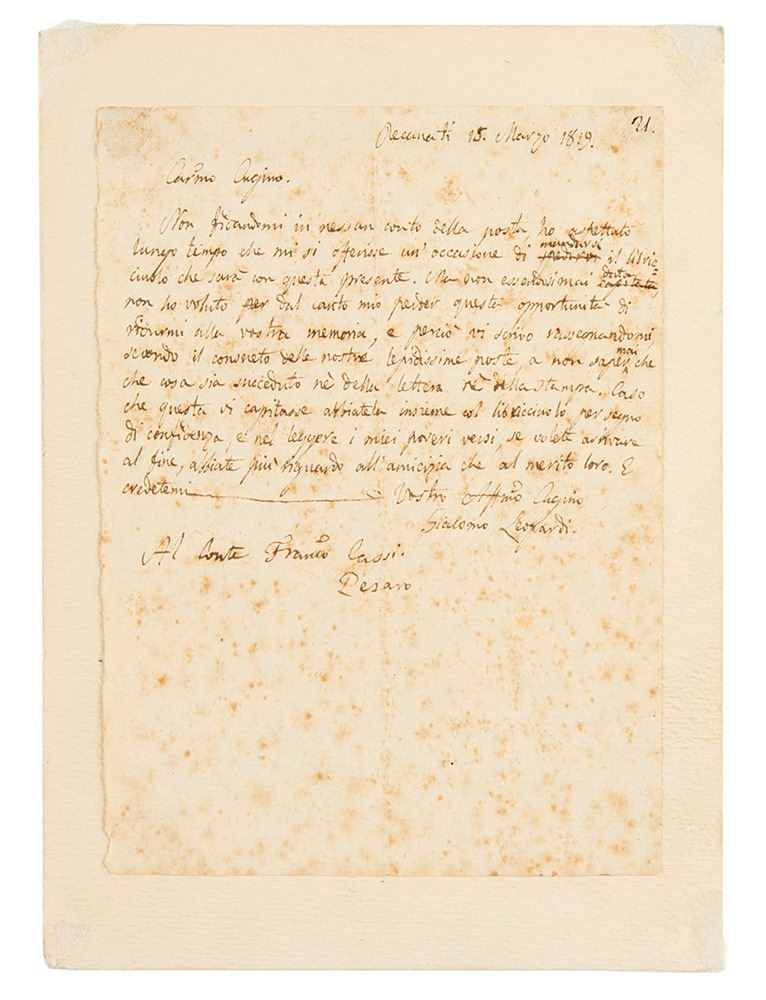 Recanati 15. Marzo 1819. 21.
Carmo Cugino.
Non fidandomi in nessun conto della posta ho aspettato
lungo tempo che mi si offerisse un' occasione di mandarvi il libric=
ciuolo che sarà con questa presente. Ma non essendosi mai data
non ho voluto per dal canto mio perder questa opportunità di
ridurmi alla vostra memoria, e perciò vi scrivo rassegnandomi,
secondo il consueto delle nostre lepidissime poste, a non saper mai che
che cosa sia succeduto nè della lettera nè della stampa. Caso
che questa vi capitasse abbiatela insieme col libricciuolo per segno
di confidenza, e nel leggere i miei poveri versi, se volete arrivare
al fine, abbiate più riguardo all'amicizia che al merito loro. E
credetemi Vostro Affmo Cugino
Giacomo Leopardi.
Al Conte Franco Cassi.
Pesaro